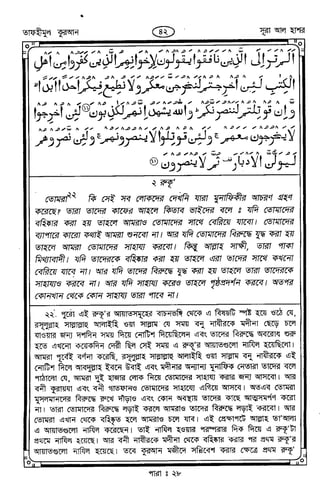 তাফহীমুল কুরআন
৪২
সূরা আল হাশর
اَلَمْ تَرَ اِلَى الَّذِيْنَ نَافَقُوْا يَقُوْلُوْنَ لِاِخْوَانِهِمُ الَّذِيْنَ كَفَرُوْا مِنْ اَهْلِ
الْكِتٰبِ لَئِنْ اُخْرِجْتُمْ لَنَخْرُجَنَّ مَعَكُمْ وَلَا نُطِيْعُ فِيْكُمْ اَحَدًا اَبَدًا
وَّاِنْ قُوْتِلْتُمْ لَنَنْصُرَنَّكُمْ وَاللّٰهُ يَشْهَدُ اِنَّهُمْ لَكٰذِبُوْنَ ﴿١١﴾ لَئِنْ اُخْرِجُوْا
لَا يَخْرُجُوْنَ مَعَهُمْ وَلَئِنْ قُوْتِلُوْا لَا يَنْصُرُوْنَهُمْ وَلَئِنْ نَّصَرُوْهُمْ
لَيُوَلُّنَّ الْاَدْبَارَ ثُمَّ لَا يُنْصَرُوْنَ ﴿١٢﴾
২ রুকূ'
তোমরা২২ কি সেই সব লোকদের দেখনি যারা মুনাফিকীর আচরণ গ্রহণ
করেছে। তারা তাদের কাফের আহলে কিতাব ভাইদের বলে : যদি তোমাদের
বহিষ্কার করা হয় তাহলে আমরাও তোমাদের সাথে বেরিয়ে যাবো। তোমাদের
ব্যাপারে কারো কথাই আমরা শুনবো না। আর যদি তোমাদের বিরুদ্ধে যুদ্ধ করা হয়
তাহলে আমরা তোমাদের সাহায্য করবো। কিন্তু আল্লাহ সাক্ষী, তারা পাকা
মিথ্যাবাদী। যদি তাদেরকে বহিষ্কার করা হয় তাহলে এরা তাদের সাথে কখনো
বেরিয়ে যাবে না। আর যদি তাদের বিরুদ্ধে যুদ্ধ করা হয় তাহলে তারা তাদেরকে
সাহায্যও করবে না। আর যদি সাহায্য করেও তাহলে পৃষ্ঠপ্রদর্শন করবে। অতপর
কোনখান থেকে কোন সাহায্য তারা পাবে না।
২২. পুরো এই রুকূ'র আয়াতসমূহের বাচনভঙ্গি থেকে এ বিষয়টি স্পষ্ট হয়ে ওঠে যে,
রসূলুল্লাহ সাল্লাল্লাহু আলাইহি ওয়া সাল্লাম যে সময় বনু নাযীরকে মদীনা ছেড়ে চলে
যাওয়ার জন্য দশদিন সময় দিয়ে নোটিশ দিয়েছিলেন এবং তাদের বিরুদ্ধে অবরোধ শুরু
হতে এখনো কয়েকদিন দেরী ছিল সেই সময় এ রুকূ'র আয়াতগুলো নাযিল হয়েছিলো।
আমরা পূর্বেই বর্ণনা করেছি, রসূলুল্লাহ সাল্লাল্লাহু আলাইহি ওয়া সাল্লাম বনু নাযীরকে এই
নোটিশ দিলে আবদুল্লাহ ইবনে উবাই এবং মদীনার অন্যান্য মুনাফিক নেতারা তাদের বলে
পাঠালো যে, আমরা দুই হাজার লোক নিয়ে তোমাদের সাহায্য করার জন্য আসবো। আর
বনী কুরায়যা এবং বনী গাতফানও তোমাদের সাহায্যে এগিয়ে আসবে। অতএব তোমরা
মুসলমানদের বিরুদ্ধে রুখে দাঁড়াও এবং কোন অবস্থায় তাদের কাছে আত্মসমর্পণ করো
না। তারা তোমাদের বিরুদ্ধে লড়াই করলে আমরাও তাদের বিরুদ্ধে লড়াই করবো। আর
তোমরা এখান থেকে বহিষ্কৃত হলে আমরাও চলে যাব। এই প্রেক্ষাপটে আল্লাহ তা'আলা
এ আয়াতগুলো নাযিল করেছেন। তাই নাযিল হওয়ার পরম্পরার দিক দিয়ে এ রুকূ'টা
প্রথমে নাযিল হয়েছে। আর বনী নাযীরকে মদীনা থেকে বহিষ্কার করার পর প্রথম রুকূ'র
আয়াতগুলো নাযিল হয়েছে। তবে কুরআন মজীদে সন্নিবেশ করার ক্ষেত্রে প্রথম রুকূ'
পারা : ২৮